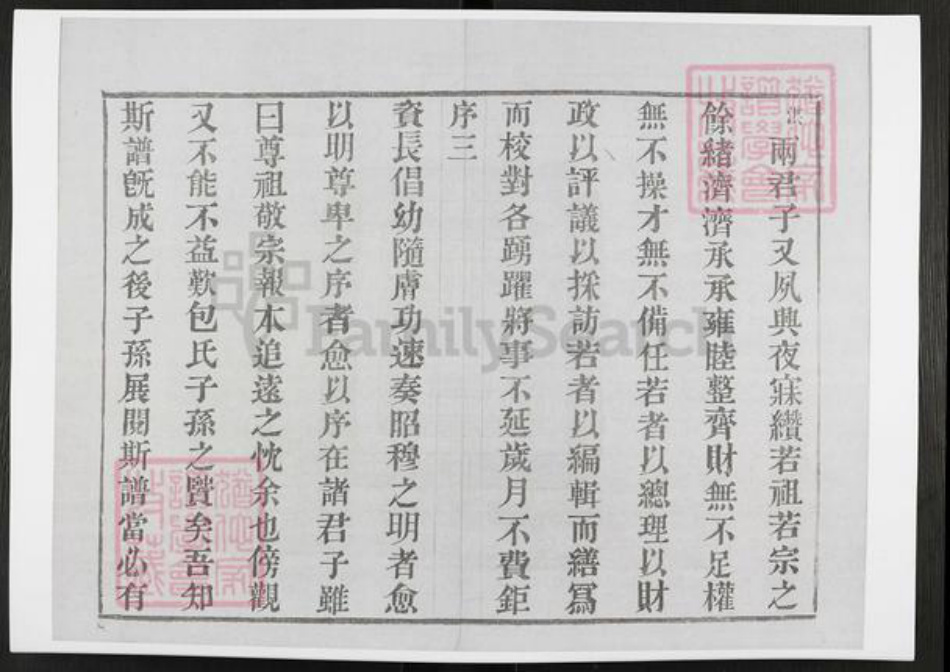 洪兩君子又夙興夜寐纘若祖若宗之
餘緒濟濟承承雍睦整齊財無不足權
無不操才無不備任若者以總理以財
政以評議以採訪若者以編輯而繕寫
而校對各踴躍將事不延歲月不費鉅
序三
資長倡幼隨膚功速奏昭穆之明者愈
以明尊卑之序者愈以序在諸君子雖
曰尊祖敬宗報本追遠之忱余也傍觀
又不能不益歎包氏子孫之賢矣吾知
斯譜旣成之後子孫展閱斯譜當必有
FamilySearch